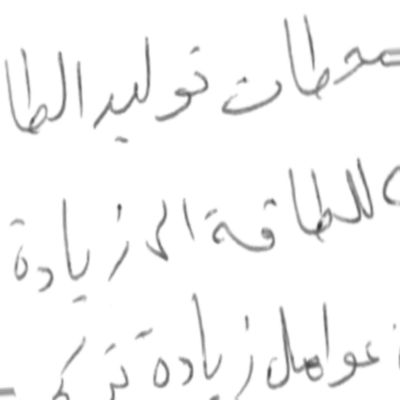 محطات توليد الطا
للطاقة الى زيادة
عوامل زيادة تركـ